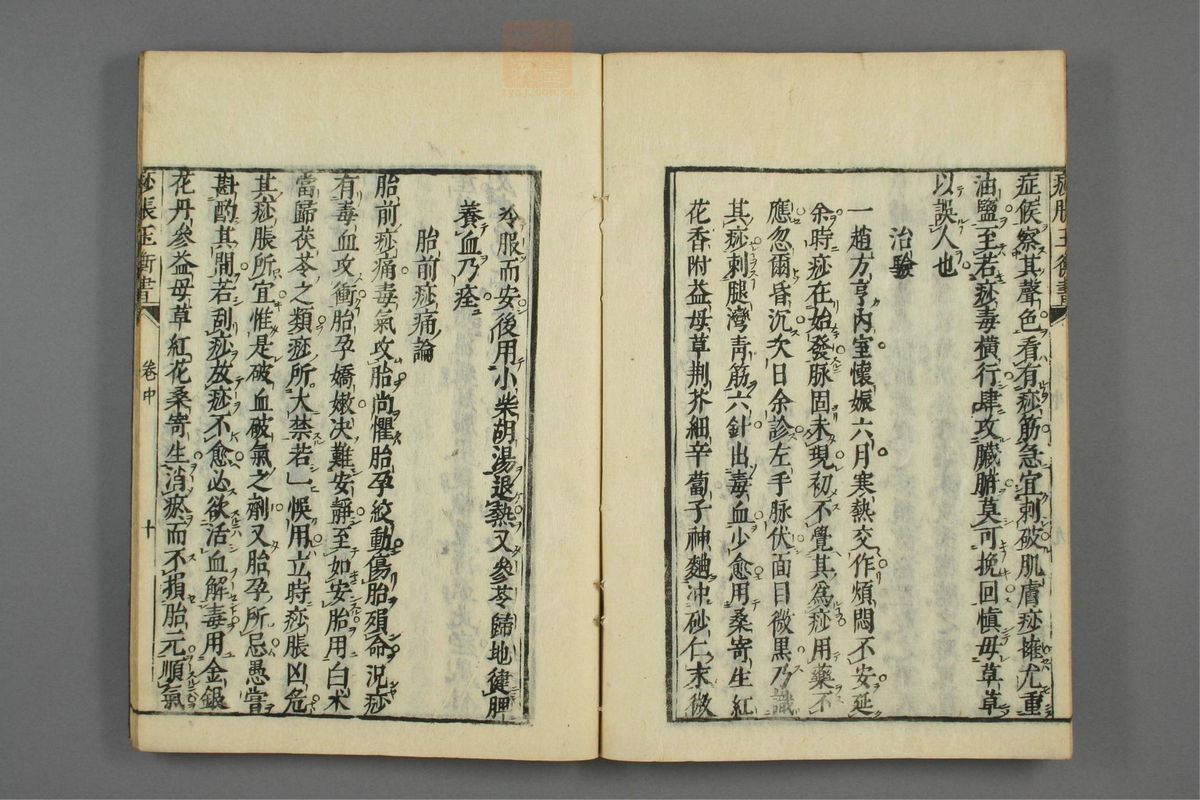 症候察其聲色看有痧筋急宜刺破肌膚痧擁尤重
油鹽至若痧毒橫行肆攻臟腑莫可挽回愼毋草草
以誤人也
治驗
一趙方亨內室懷娠六月寒熱交作煩悶不安延
余時痧在始發脉固未現初不覺其爲痧用藥不
應忽爾昏沉次日余診左手脉伏面目微黑乃識
其痧刺腿灣青筋六針出毒血少愈用桑寄生紅
花香附益母草荆芥細辛蔔子神麯冲砂仁末微
冷服而安後用小柴胡湯退熱又參苓歸地健脾
養血乃痊
胎前痧痛論
胎前痧痛毒氣攻胎尚懼胎孕絞動傷胎殞命況痧
有毒血攻衝胎孕嬌嫩决難安靜至如安胎用白术
當歸茯苓之類痧所大禁若一悞用立時痧脹凶危
其痧脹所宜惟是破血破氣之劑又胎孕所忌愚嘗
斟酌其間若刮痧放痧不愈必欲活血解毒用金銀
花丹參益母草紅花桑寄生消瘀而不損胎元順氣
痧脹玉衡書
卷中
十